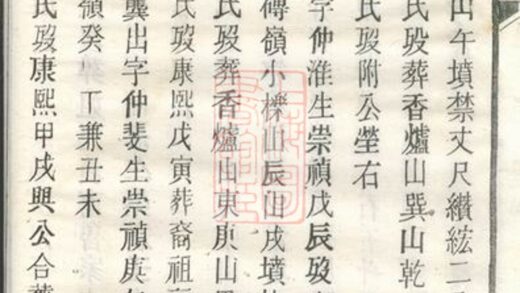 山午墳禁丈尺纘紘二
氏歿葬香爐山巽山乾
氏歿附公塋右
字仲淮生崇禎戊辰歿
傅嶺小櫟山辰山戌墳
氏歿葬香爐山東庚山
氏歿康熙戊寅葬裔祖
龔出字仲斐生崇禎庚
嶺癸丁兼丑未
氏歿康熙甲戌與公合葬